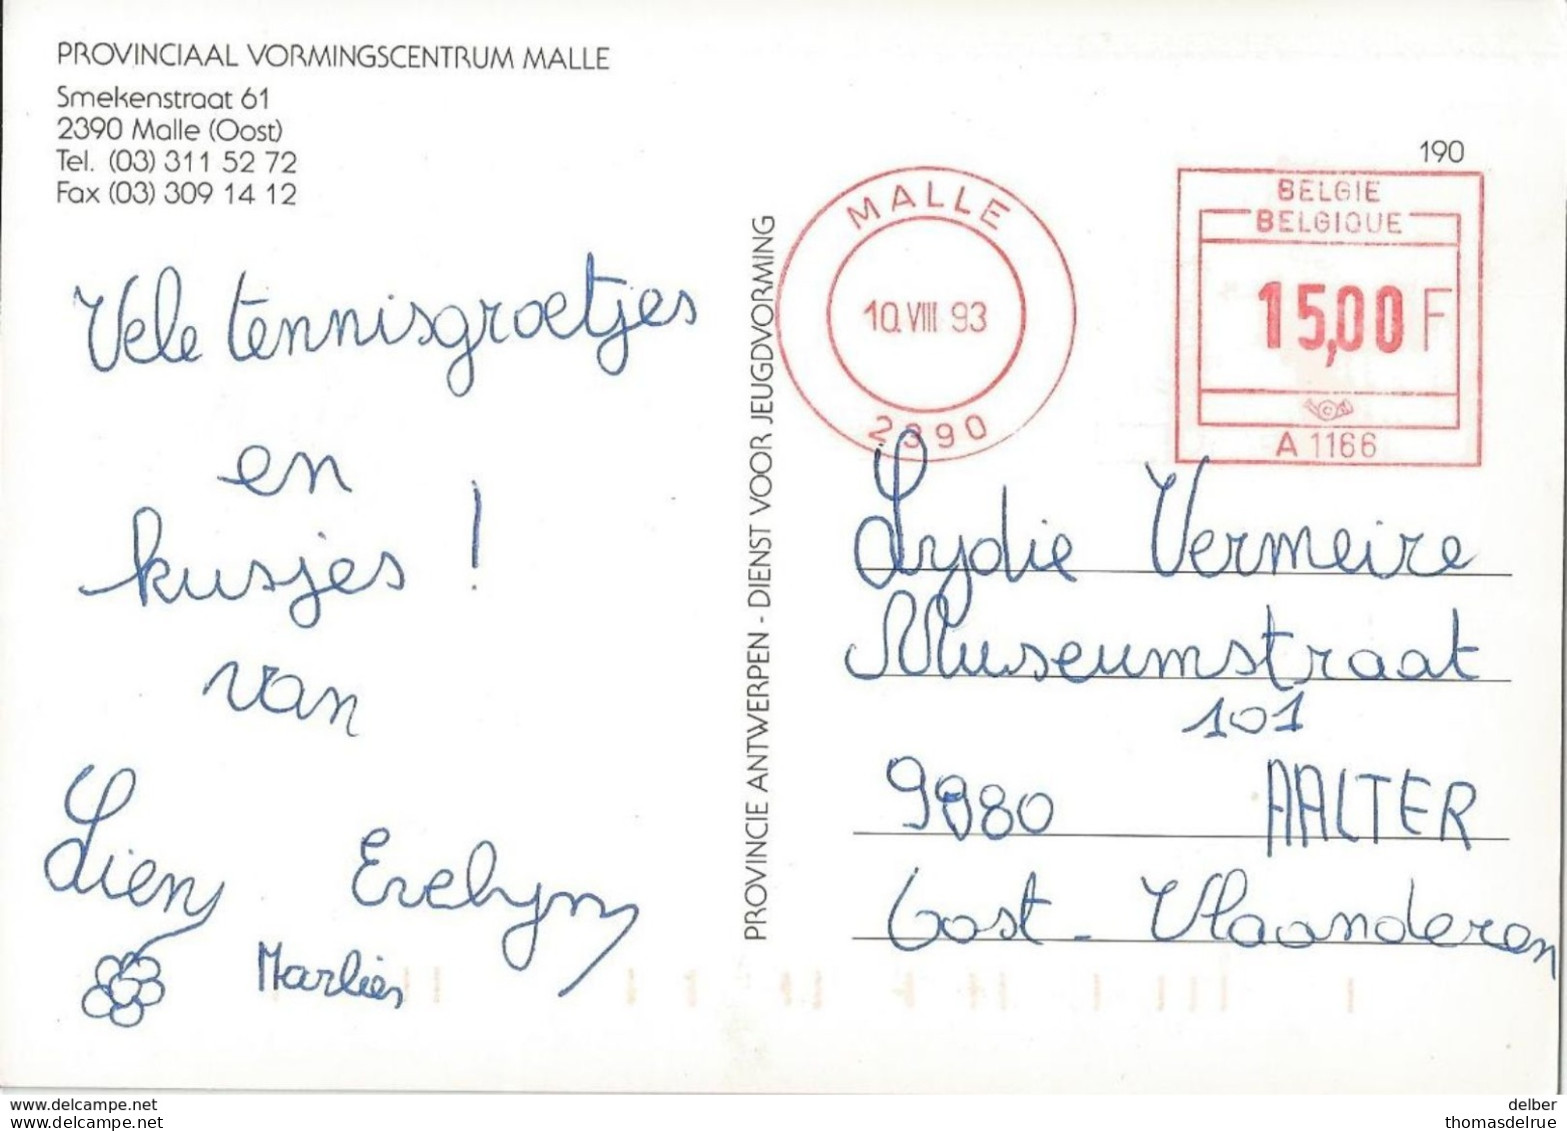 PROVINCIAAL VORMINGSCENTRUM MALLE
Smekenstraat 61
2390 Malle (Oost)
Tel. (03) 311 52 72
Fax (03) 309 14 12
Vele tennisgroetjes
en
kusjes !
van
Lien Evelyn
Marlies
PROVINCIE ANTWERPEN - DIENST VOOR JEUGDVORMING
MALLE
10.VIII 93
2390
190
BELGIE
BELGIQUE
15,00 F
A 1166
Lydie Vermeire
Museumstraat
101
9880 AALTER
Oost - Vlaanderen
www.delcampe.net
delber
thomasdelrue